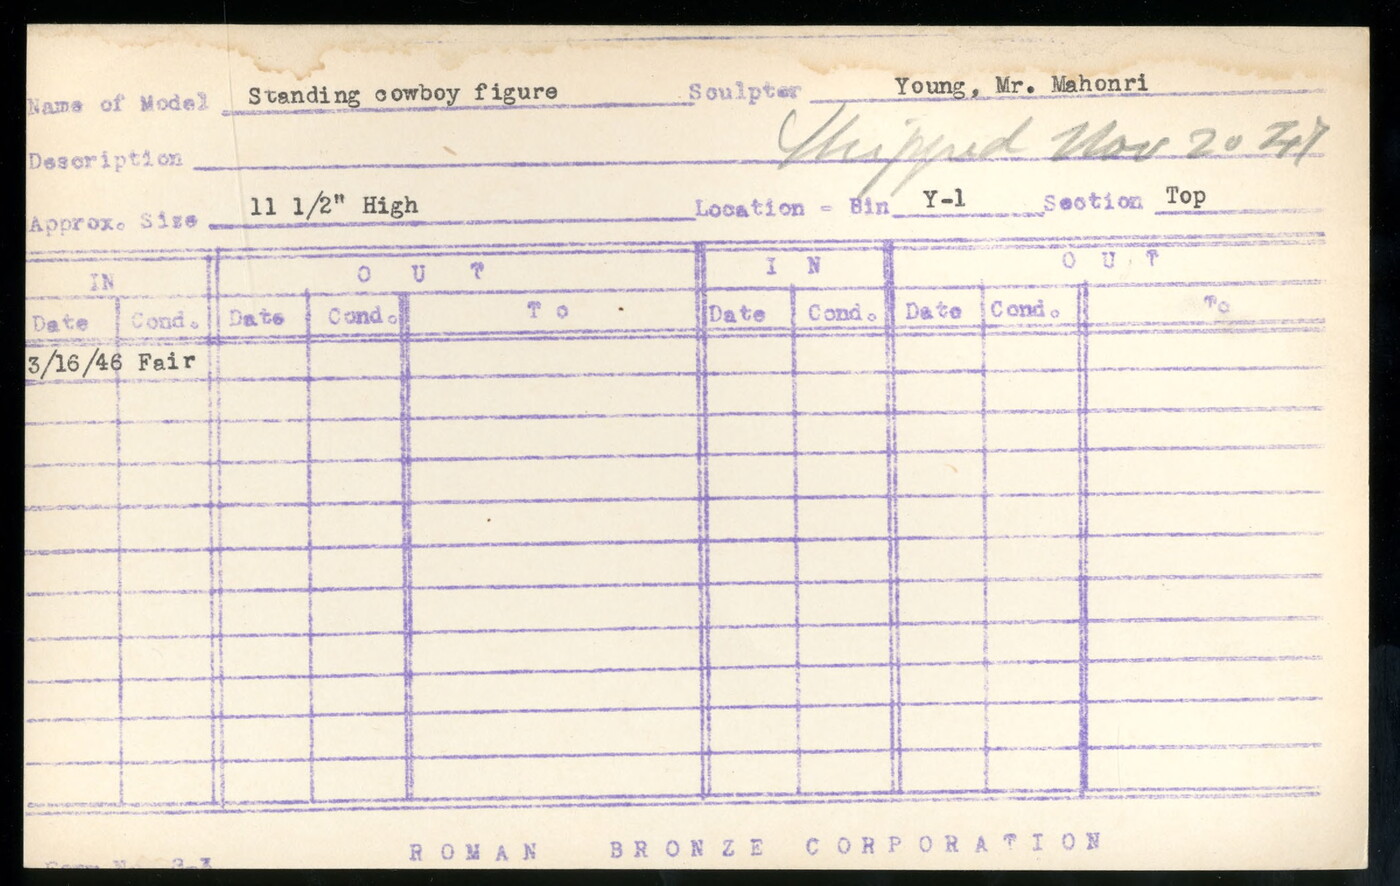 Name of Model Standing cowboy figure Sculptor Young, Mr. Mahonri
Shipped Nov 20 47
Description
Approx. Size 11 1/2" High Location - Bin Y-1 Section Top
IN OUT IN OUT
Date Cond. Date Cond. To Date Cond. Date Cond. To
3/16/46 Fair
ROMAN BRONZE CORPORATION
Form No.